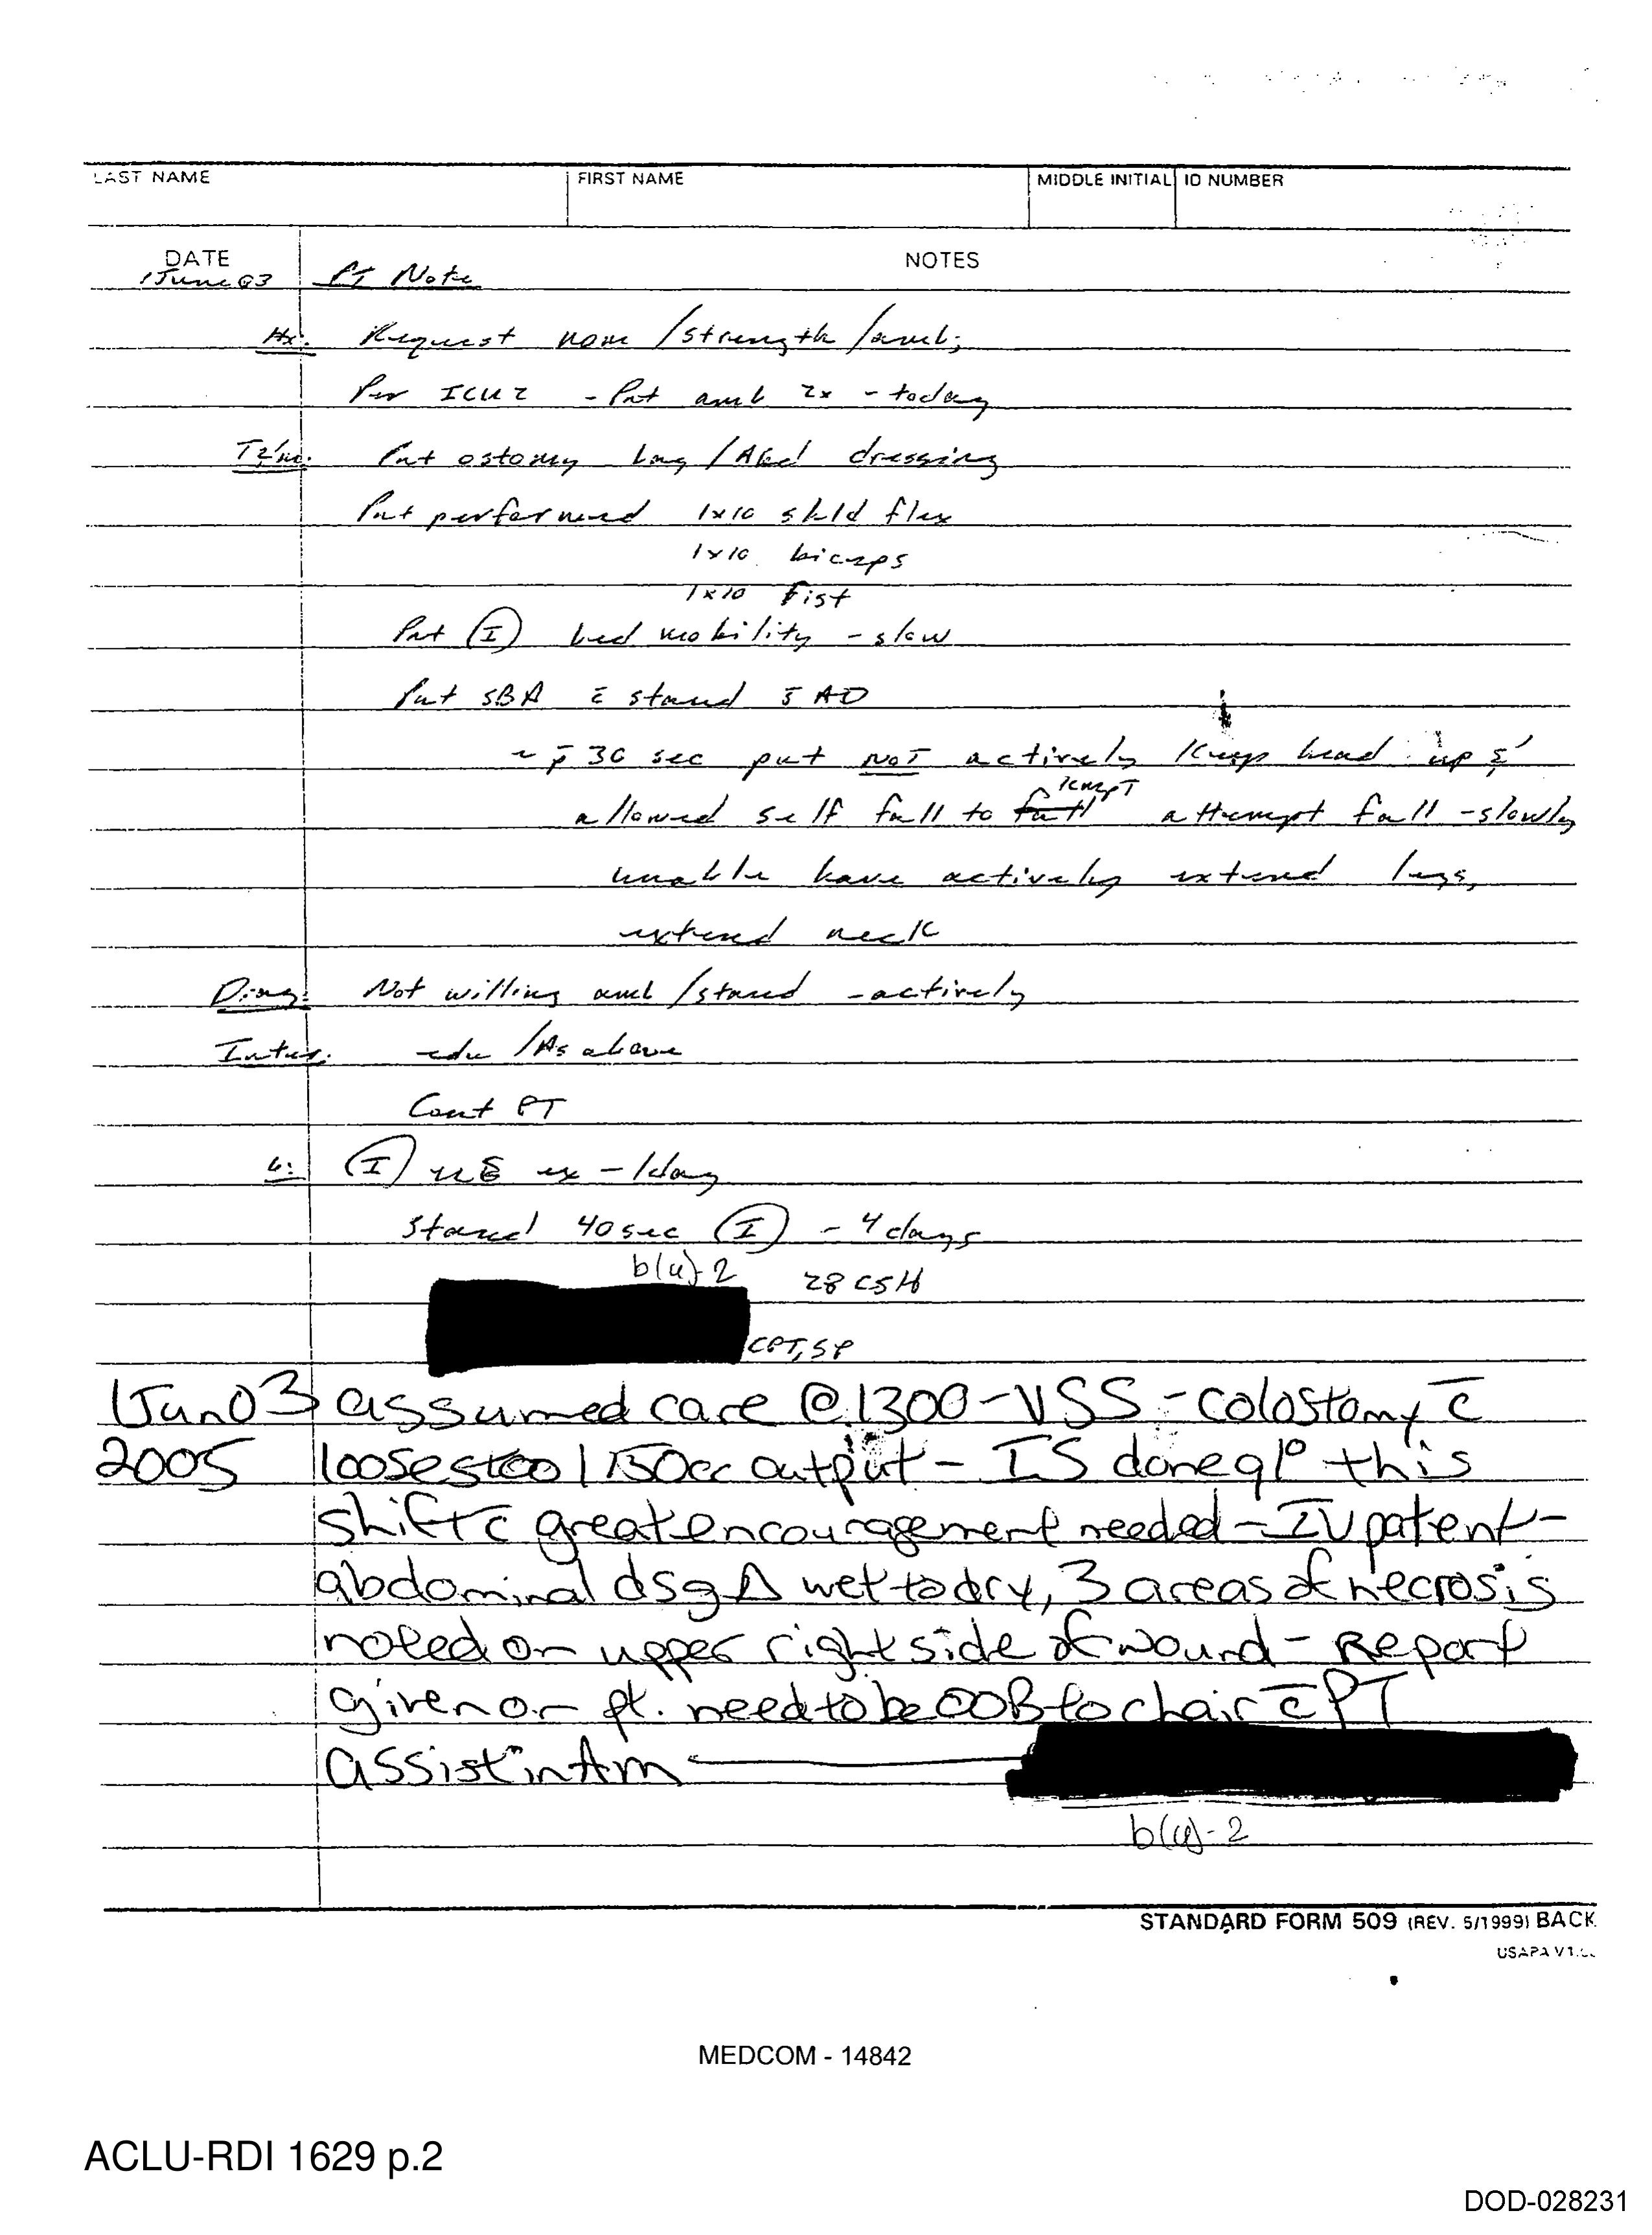 LAST NAME FIRST NAME MIDDLE INITIAL ID NUMBER
DATE NOTES
1 June 03 PT Note
Hx: Request rom / strength / amb;
Per ICU 2 - Pat amb 2x - today
Pat ostomy bag / Abd dressing
Pat performed 1x10 shld flex
1x10 biceps
1x10 Fist
Pat (I) bed mobility - slow
Pat SBA c̄ stand s̄ AD
~ p̄ 30 sec pat NOT actively keep head up &
kmpT
allowed self fall to attempt fall - slowly
unable have actively extend legs,
extend neck
Diag: Not willing amb / stand - actively
Inter: edu / As above
Cont PT
G: (I) UE ex - 1 day
Stand 40 sec (I) - 4 days
b(6)-2 28 CSH
CPT, SP
1Jun03 assumed care @ 1300 - VSS - colostomy c̄
2005 loose stool 150cc output - IS done q1° this
shift c̄ great encouragement needed - IV patent -
abdominal dsg Δ wet to dry, 3 areas of necrosis
noted on upper right side of wound - Report
given on pt. need to be OOB to chair c̄ PT
assist in Am
b(6)-2
STANDARD FORM 509 (REV. 5/1999) BACK
USAPA
MEDCOM - 14842
ACLU-RDI 1629 p.2
DOD-028231